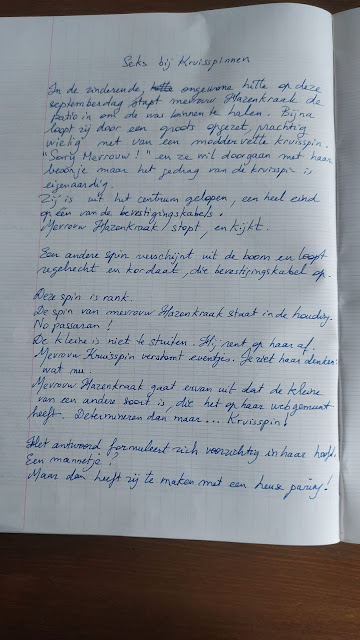 Seks bij Kruisspinnen
In de zinderende, hitte ongewone hitte op deze
septemberdag stapt mevrouw Hazenkraak de
patio in om de was binnen te halen. Bijna
loopt zij door een groots opgezet, prachtig
wielig net van een moddervette kruisspin.
"Sorry Mevrouw!" en ze wil doorgaan met haar
maar het gedrag van de kruisspin is
eigenaardig.
Zij is uit het centrum gelopen, een heel eind
op één van de bevestigingskabels.
Mevrouw Hazenkraak stopt, en kijkt.
Een andere spin verschijnt uit de boom en loopt
regelrecht en kordaat, die bevestigingskabel op.
Deze spin is rank.
De spin van mevrouw Hazenkraak staat in de houding.
No passaran!
De kleine is niet te stuiten. Hij rent op haar af.
Mevrouw Kruisspin verstomt eventjes. Je ziet haar denken:
wat nu.
Mevrouw Hazenkraak gaat ervan uit dat de kleine
van een ander soort is, die het op haar web gemunt
heeft. Determineren dan maar... Kruisspin!
Het antwoord formuleert zich voorzichtig in haar hoofd.
Een mannetje!
Maar dan heeft zij te maken met een heuse paring!